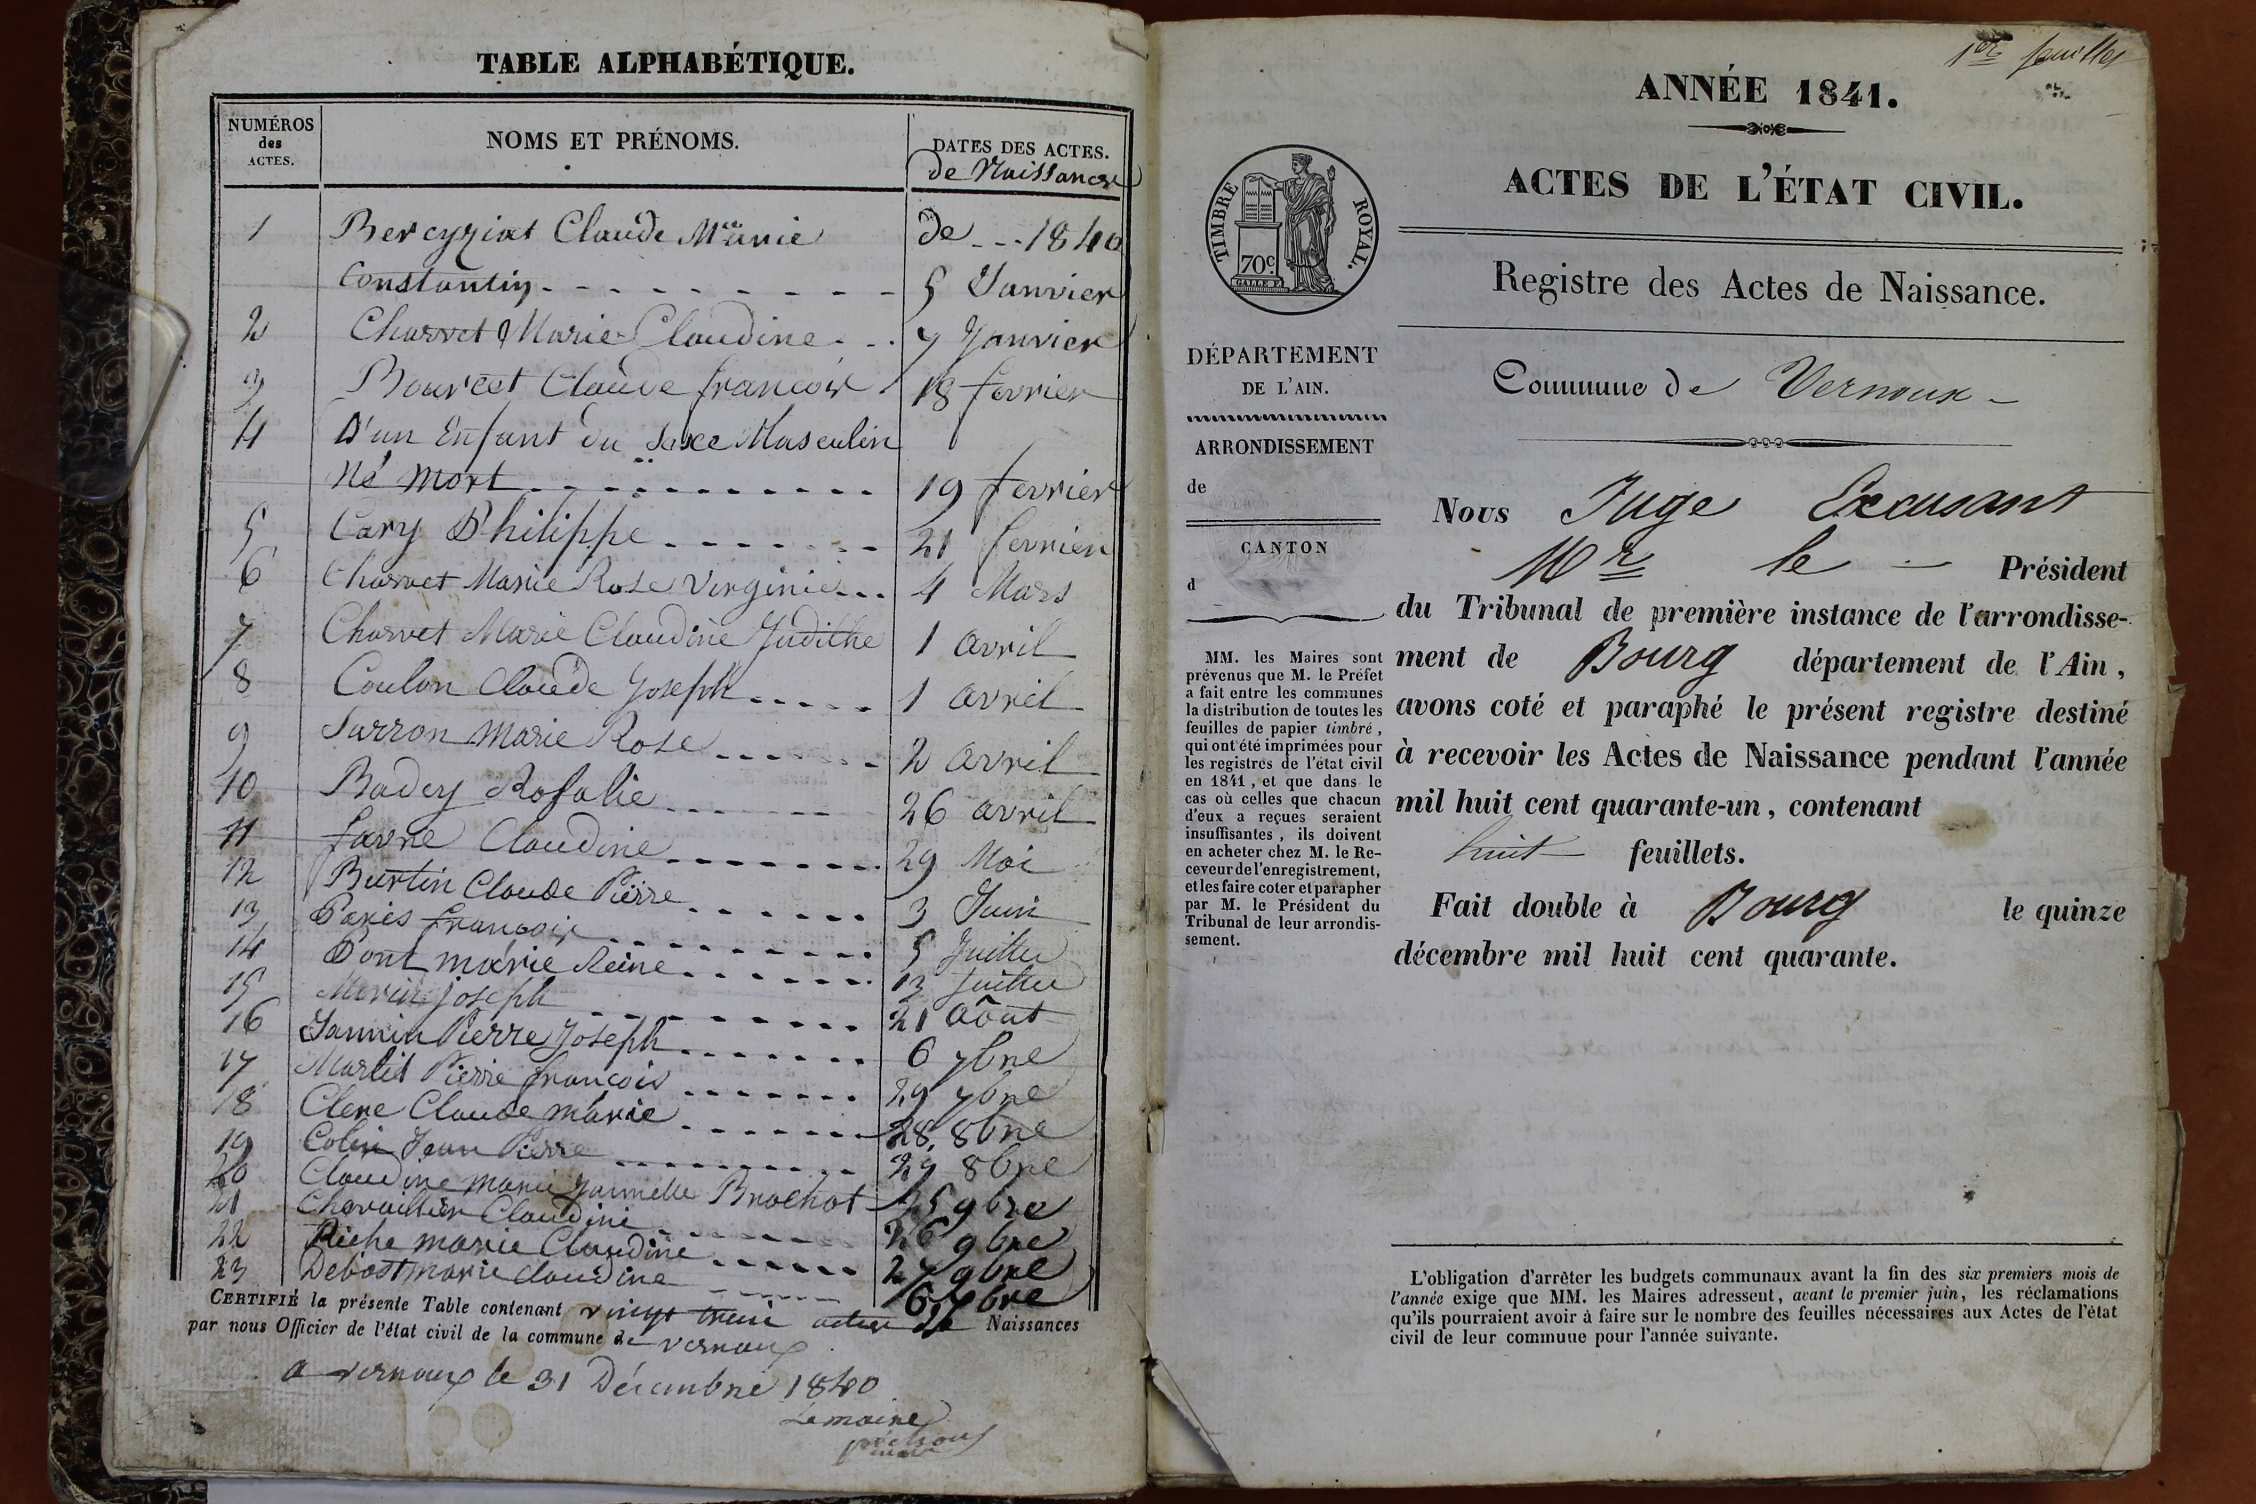 TABLE ALPHABÉTIQUE.
NUMÉROS des ACTES.
NOMS ET PRÉNOMS.
DATES DES ACTES.
de Naissance
1 Bercyziat Claude Marie de - - - 1840
Constantin - - - - - - - - - - 5 Janvier
2 Charvet Marie Claudine - - - 7 Janvier
3 Bourcet Claude francois 18 fevrier
4 D'un Enfant du sexe Masculin
Né mort - - - - - - - - - - - - 19 fevrier
5 Cary Philippe - - - - - - - 21 fevrier
6 Charvet Marie Rose Virginie - - - 4 Mars
7 Charvet Marie Claudine Judithe 1 avril
8 Coulon Claude Joseph - - - - - 1 avril
9 Sarron Marie Rose - - - - - - 2 avril
10 Badey Rosalie - - - - - 26 avril
11 favre Claudine - - - - - - - - 29 Mai
12 Burtin Claude Pierre - - - - - - 3 Juin
13 Paris francois - - - - - - - - - 5 Juillet
14 Pont marie Reine - - - - - - - 13 Juillet
15 joseph - - - - - - - - - 21 Aôut
16 Jannin Pierre Joseph - - - - - - 6 7bre
17 Pierre francois - - - - - - 29 7bre
18 Clerc Claude marie - - - - - - - 28 8bre
19 Colin Jean Pierre - - - - - - - - - 29 8bre
20 Claudine marie Brochot 25 9bre
21 Claudine - - - - - - - 26 9bre
22 Riche marie Claudine - - - - - - 27 9bre
23 Debost marie claudine - - - - - 6
CERTIFIÉ la présente Table contenant vingt trois actes de Naissances
par nous Officier de l'état civil de la commune de vernoux
a vernoux le 31 Décembre 1840
Le maire
1er feuillet
ANNÉE 1841.
ACTES DE L'ÉTAT CIVIL.
Registre des Actes de Naissance.
TIMBRE ROYAL.
70c.
GALLE F.
DÉPARTEMENT
DE L'AIN.
ARRONDISSEMENT
de
CANTON
d
MM. les Maires sont
prévenus que M. le Préfet
a fait entre les communes
la distribution de toutes les
feuilles de papier timbré,
qui ont été imprimées pour
les registres de l'état civil
en 1841, et que dans le
cas où celles que chacun
d'eux a reçues seraient
insuffisantes, ils doivent
en acheter chez M. le Re-
ceveur de l'enregistrement,
et les faire coter et parapher
par M. le Président du
Tribunal de leur arrondis-
sement.
Commune de Vernoux
Nous Juge Excusant
Mr le Président
du Tribunal de première instance de l'arrondisse-
ment de Bourg département de l'Ain,
avons coté et paraphé le présent registre destiné
à recevoir les Actes de Naissance pendant l'année
mil huit cent quarante-un, contenant
huit feuillets.
Fait double à Bourg le quinze
décembre mil huit cent quarante.
L'obligation d'arrêter les budgets communaux avant la fin des six premiers mois de
l'année exige que MM. les Maires adressent, avant le premier juin, les réclamations
qu'ils pourraient avoir à faire sur le nombre des feuilles nécessaires aux Actes de l'état
civil de leur commune pour l'année suivante.